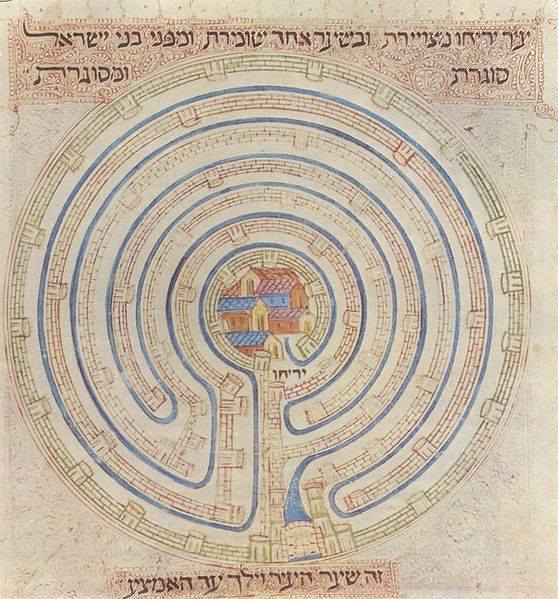 עיר יריחו מצויירת ובשיער אחד שומרת ומפני בני ישראל
סוגרת ומסוגרת
יריחו
זה שיער העיר וילך עד האמצע